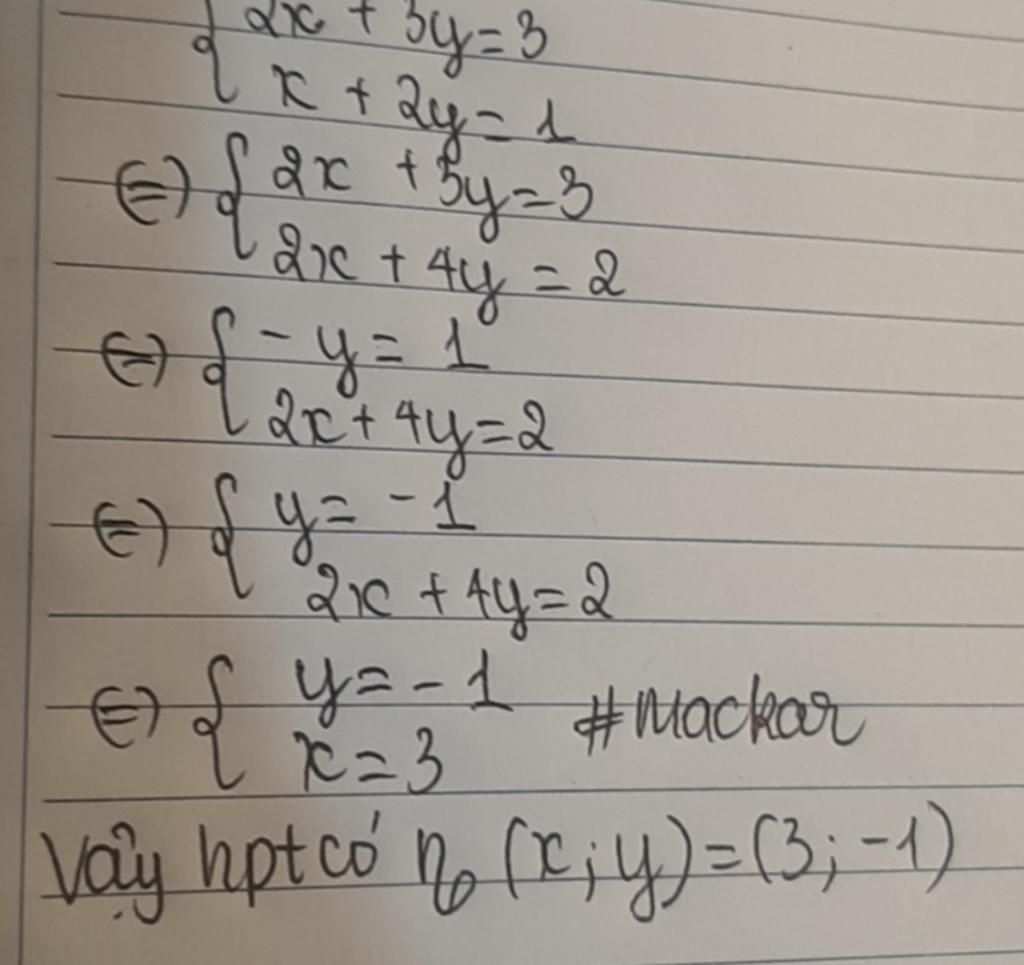 { 2x + 3y = 3
x + 2y = 1
⇔ { 2x + 3y = 3
2x + 4y = 2
⇔ { - y = 1
2x + 4y = 2
⇔ { y = - 1
2x + 4y = 2
⇔ { y = - 1
x = 3 #mackar
Vậy hpt có n₀ (x; y) = (3; -1)